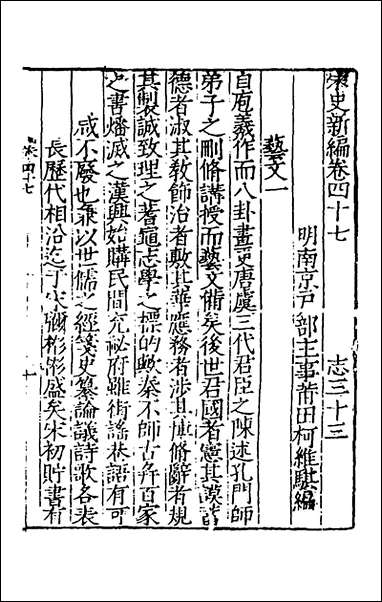 宋史新編卷四十七　志三十三
明南京戶部主事莆田柯維騏編
藝文一
自庖羲作而八卦畫更唐虞三代君臣之陳述孔門師
弟子之刪脩講授而藝文備矣後世君國者憲其謨誥
德者淑其教師治者敷其華應務者涉其博脩辭者規
其製誠致理之蓍龜志學之標的歟秦不師古弁百家
之書燔滅之漢興始購民間充祕府雖術謠巷語有可
咸不廢也兼以世儒之經箋史纂論議詩歌各表
長歷代相沿迄于宋彌彬彬盛矣宋初貯書有
卷四十七